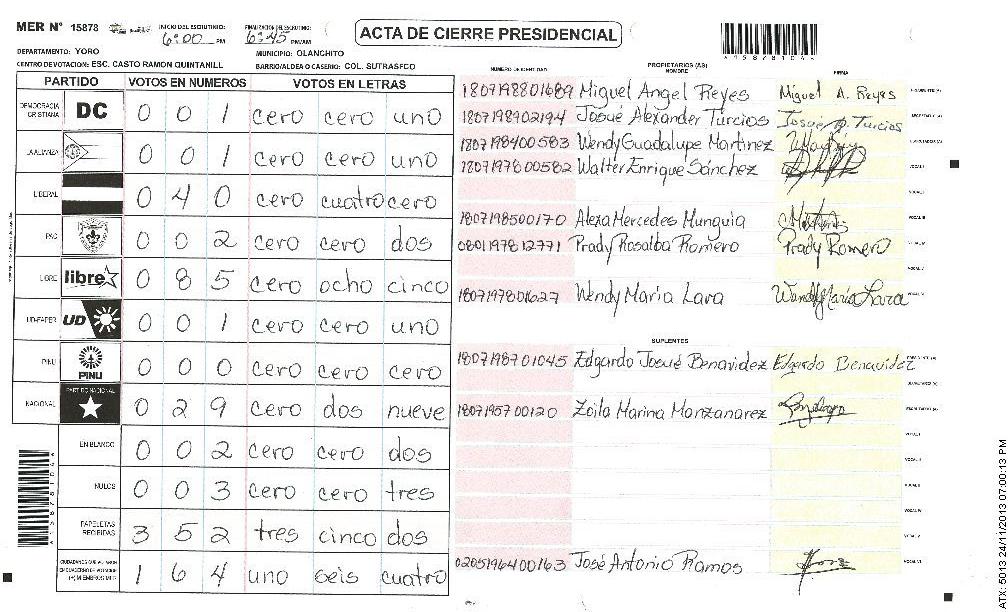 MER N° 15878
INICIO DEL ESCRUTINIO: 6:00 PM
FINALIZACION DEL ESCRUTINIO: 6:45 PM/AM
ACTA DE CIERRE PRESIDENCIAL
A15878104A
DEPARTAMENTO: YORO
MUNICIPIO: OLANCHITO
CENTRO DE VOTACION: ESC. CASTO RAMON QUINTANILL
BARRIO/ALDEA O CASERIO: COL. SUTRASFCO
PARTIDO VOTOS EN NUMEROS VOTOS EN LETRAS
DEMOCRACIA CRISTIANA DC 0 0 1 cero cero uno
LA ALIANZA 0 0 1 cero cero uno
LIBERAL 0 4 0 cero cuatro cero
PAC 0 0 2 cero cero dos
LIBRE libre 0 8 5 cero ocho cinco
UD-FAPER UD 0 0 1 cero cero uno
PINU PINU 0 0 0 cero cero cero
NACIONAL PARTIDO NACIONAL 0 2 9 cero dos nueve
EN BLANCO 0 0 2 cero cero dos
NULOS 0 0 3 cero cero tres
PAPELETAS RECIBIDAS 3 5 2 tres cinco dos
CIUDADANOS QUE VOTARON EN CUADERNO DE VOTACION (+) MIEMBROS MER 1 6 4 uno seis cuatro
NUMERO DE IDENTIDAD PROPIETARIOS (AS) NOMBRE FIRMA
1807198801689 Miguel Angel Reyes Miguel A. Reyes PRESIDENTE (A)
1807198902194 Josué Alexander Turcios Josué A. Turcios SECRETARIO (A)
1807198400583 Wendy Guadalupe Martinez ESCRUTADOR (A)
1807197800582 Walter Enrique Sánchez VOCAL I
VOCAL II
1807198500170 Alexa Mercedes Munguia VOCAL III
0801197812771 Prady Rosalba Romero Prady Romero VOCAL IV
VOCAL V
1807197801627 Wendy Maria Lara Wendy Maria Lara VOCAL VI
SUPLENTES
1807198701045 Edgardo Josué Benavidez Edgardo Benavidez PRESIDENTE (A)
SECRETARIO (A)
1807195700120 Zoila Marina Manzanarez ESCRUTADOR (A)
VOCAL I
VOCAL II
VOCAL III
VOCAL IV
VOCAL V
0205196400163 José Antonio Ramos VOCAL VI
ATX: 5013 24/11/2013 07:00:13 PM